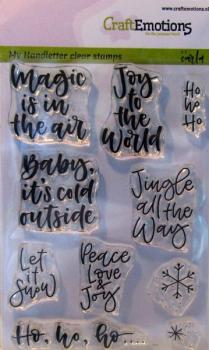 CraftEmotions
www.craftemotions.nl
My Handletter clear stamps
Carla
Magic
is in
the air
Joy
to the
World
Ho
ho
Ho
Baby,
it's cold
outside
Jingle
all the
Way
Let
it
Snow
Peace
Love &
Joy
Ho, ho, ho....